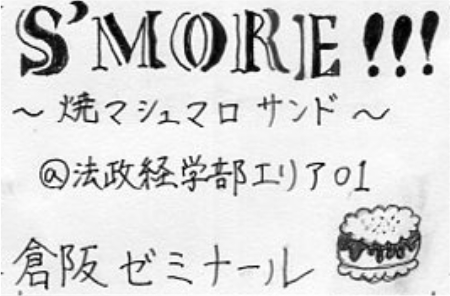 S'MORE!!!
～焼マシュマロサンド～
@法政経学部エリア01
倉阪ゼミナール